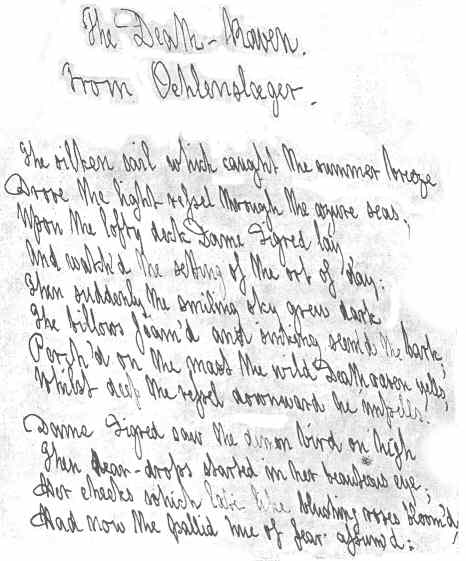 The Death-Raven.
From Oehlenslæger.
The silken sail which caught the summer breeze
Drove the light vessel through the azure seas;
Upon the lofty deck Dame Sigred lay
And watch'd the setting of the orb of day:
Then suddenly the smiling sky grew dark
The billows foam'd and sinking seem'd the bark;
Perch'd on the mast the wild Death raven yells,
Whilst deep the vessel downward he impells!
Dame Sigred saw the demon bird on high
Then tear-drops started in her beauteous eye;
Her cheeks which late like blushing roses bloom'd,
Had now the pallid hue of fear assum'd: